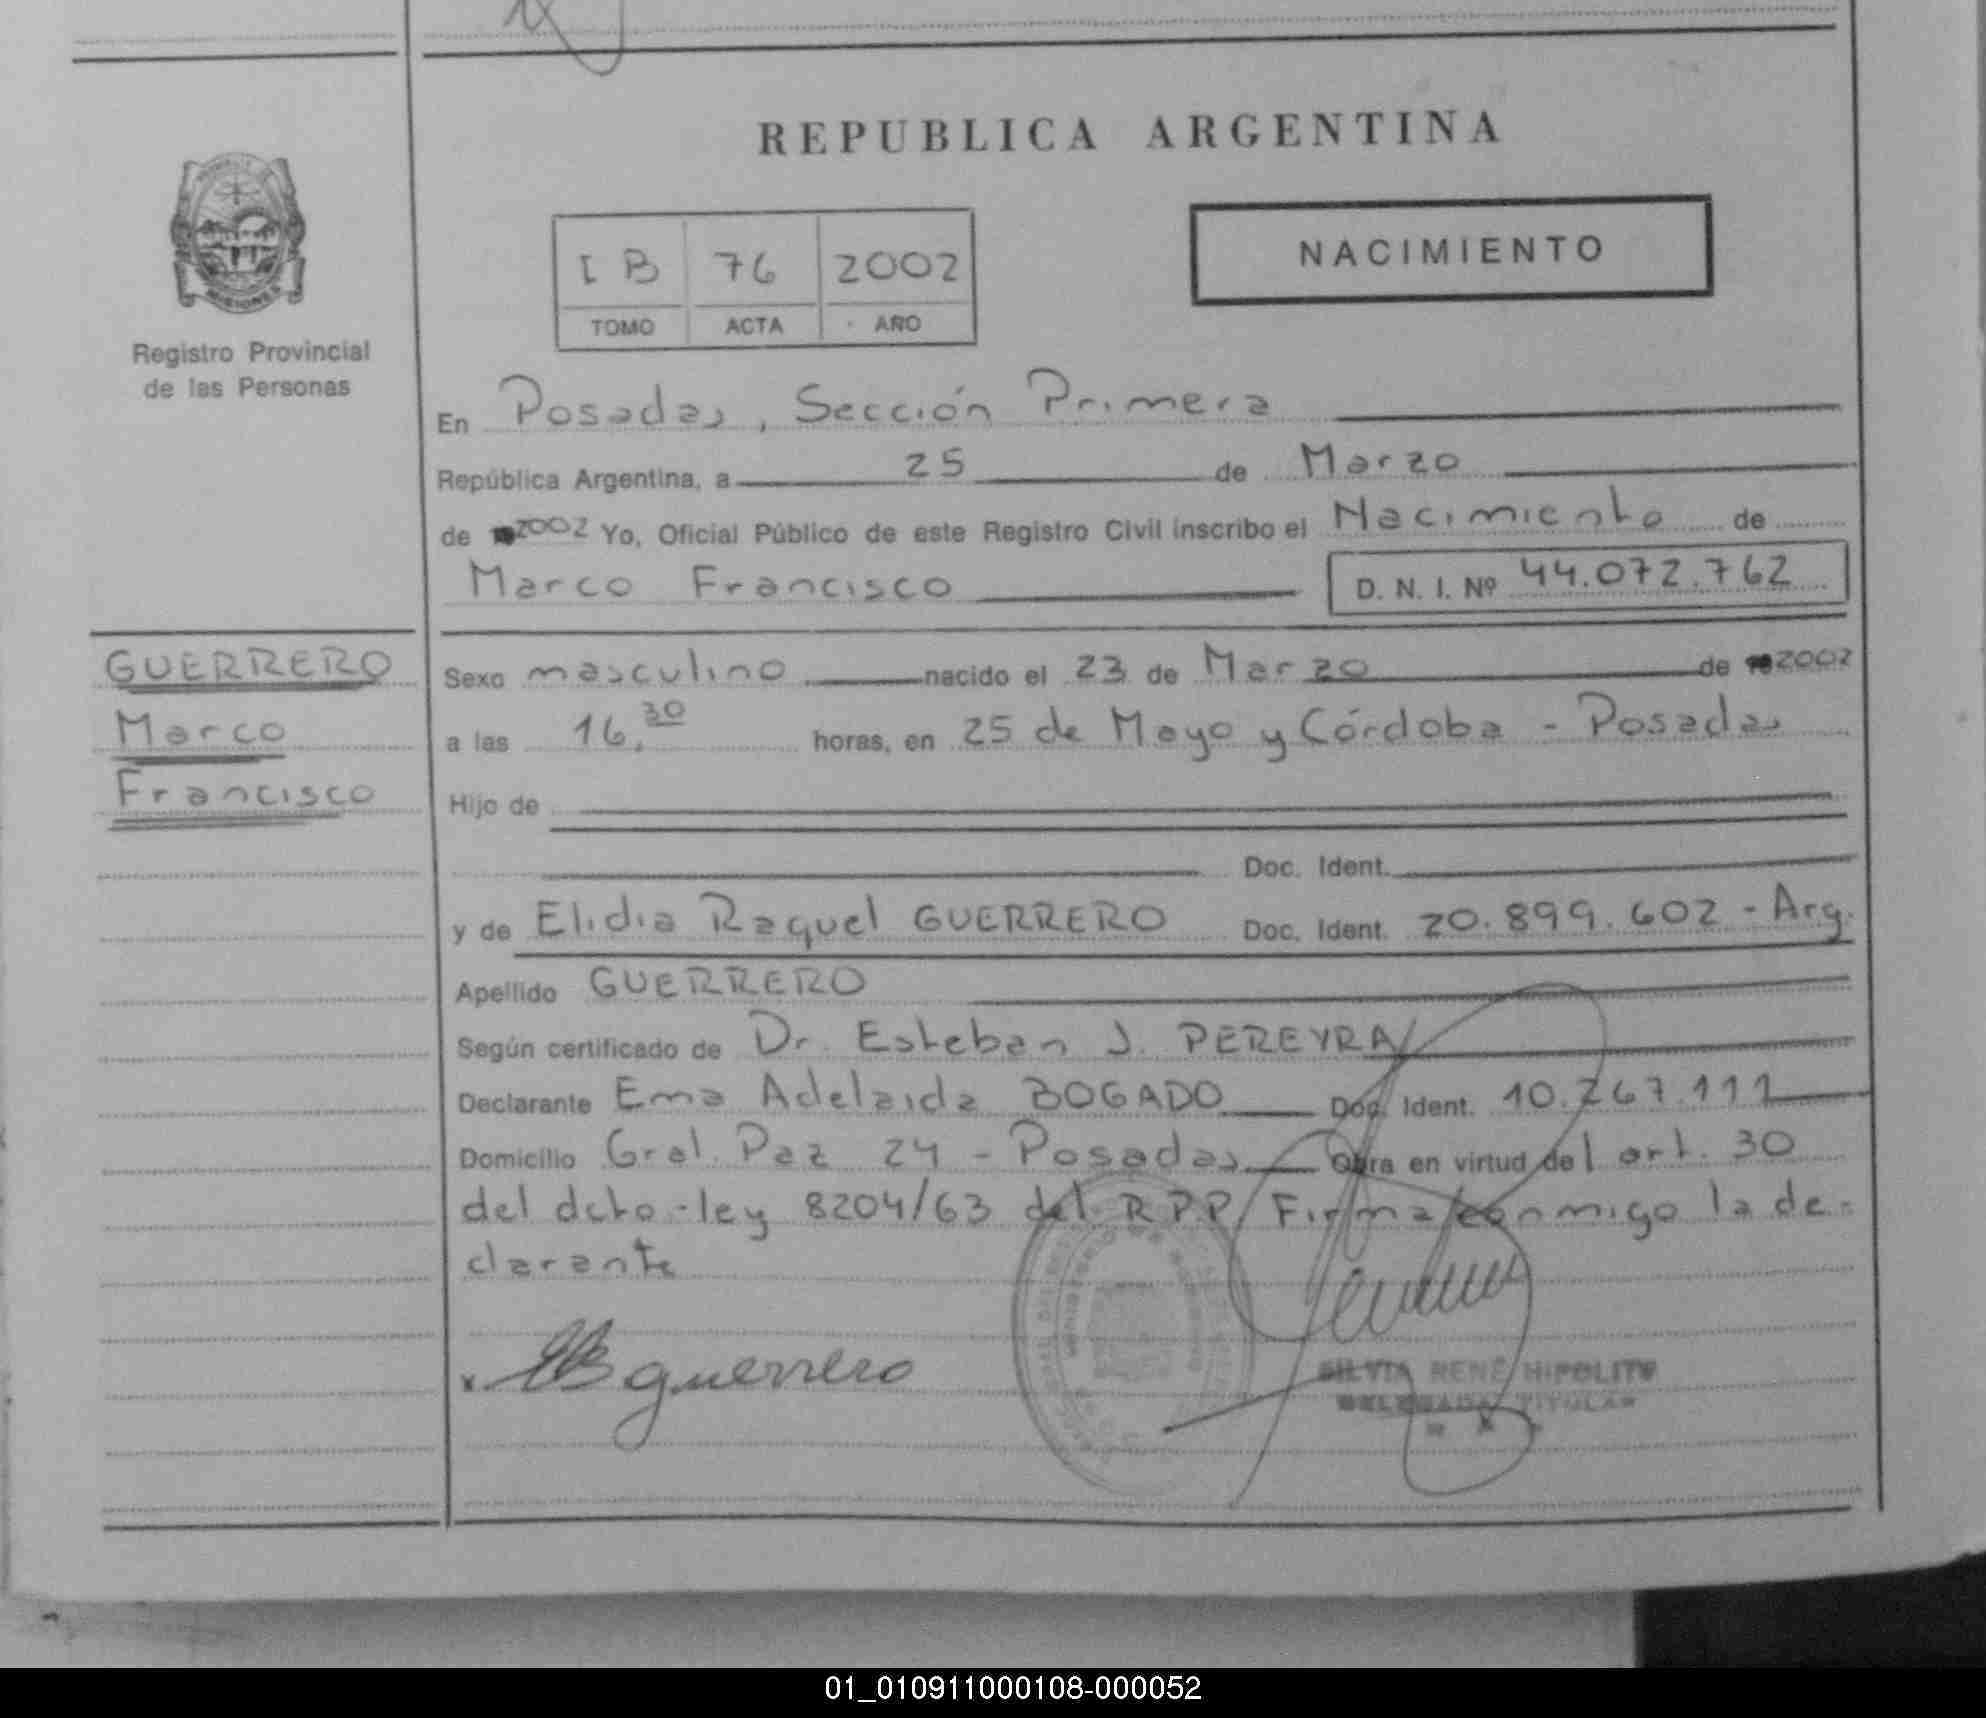 REPUBLICA ARGENTINA
I B 76 2002
TOMO ACTA AÑO
NACIMIENTO
MISIONES
Registro Provincial
de las Personas
En Posadas, Sección Primera
República Argentina, a 25 de Marzo
de 2002 Yo, Oficial Público de este Registro Civil inscribo el Nacimiento de
Marco Francisco D. N. I. Nº 44.072.762
GUERRERO
Marco
Francisco
Sexo masculino nacido el 23 de Marzo de 2002
a las 16,30 horas, en 25 de Mayo y Córdoba - Posadas
Hijo de
Doc. Ident.
y de Elidia Raquel GUERRERO Doc. Ident. 20.899.602 - Arg.
Apellido GUERRERO
Según certificado de Dr. Esteban J. PEREYRA
Declarante Ema Adelaida BOGADO Doc. Ident. 10.267.111
Domicilio Gral. Paz 24 - Posadas Obra en virtud del art. 30
del dcto-ley 8204/63 del R.P.P. Firma conmigo la de-
clarante
x guerrero
SILVIA RENÉ HIPOLITO
DELEGADA TITULAR
01_010911000108-000052